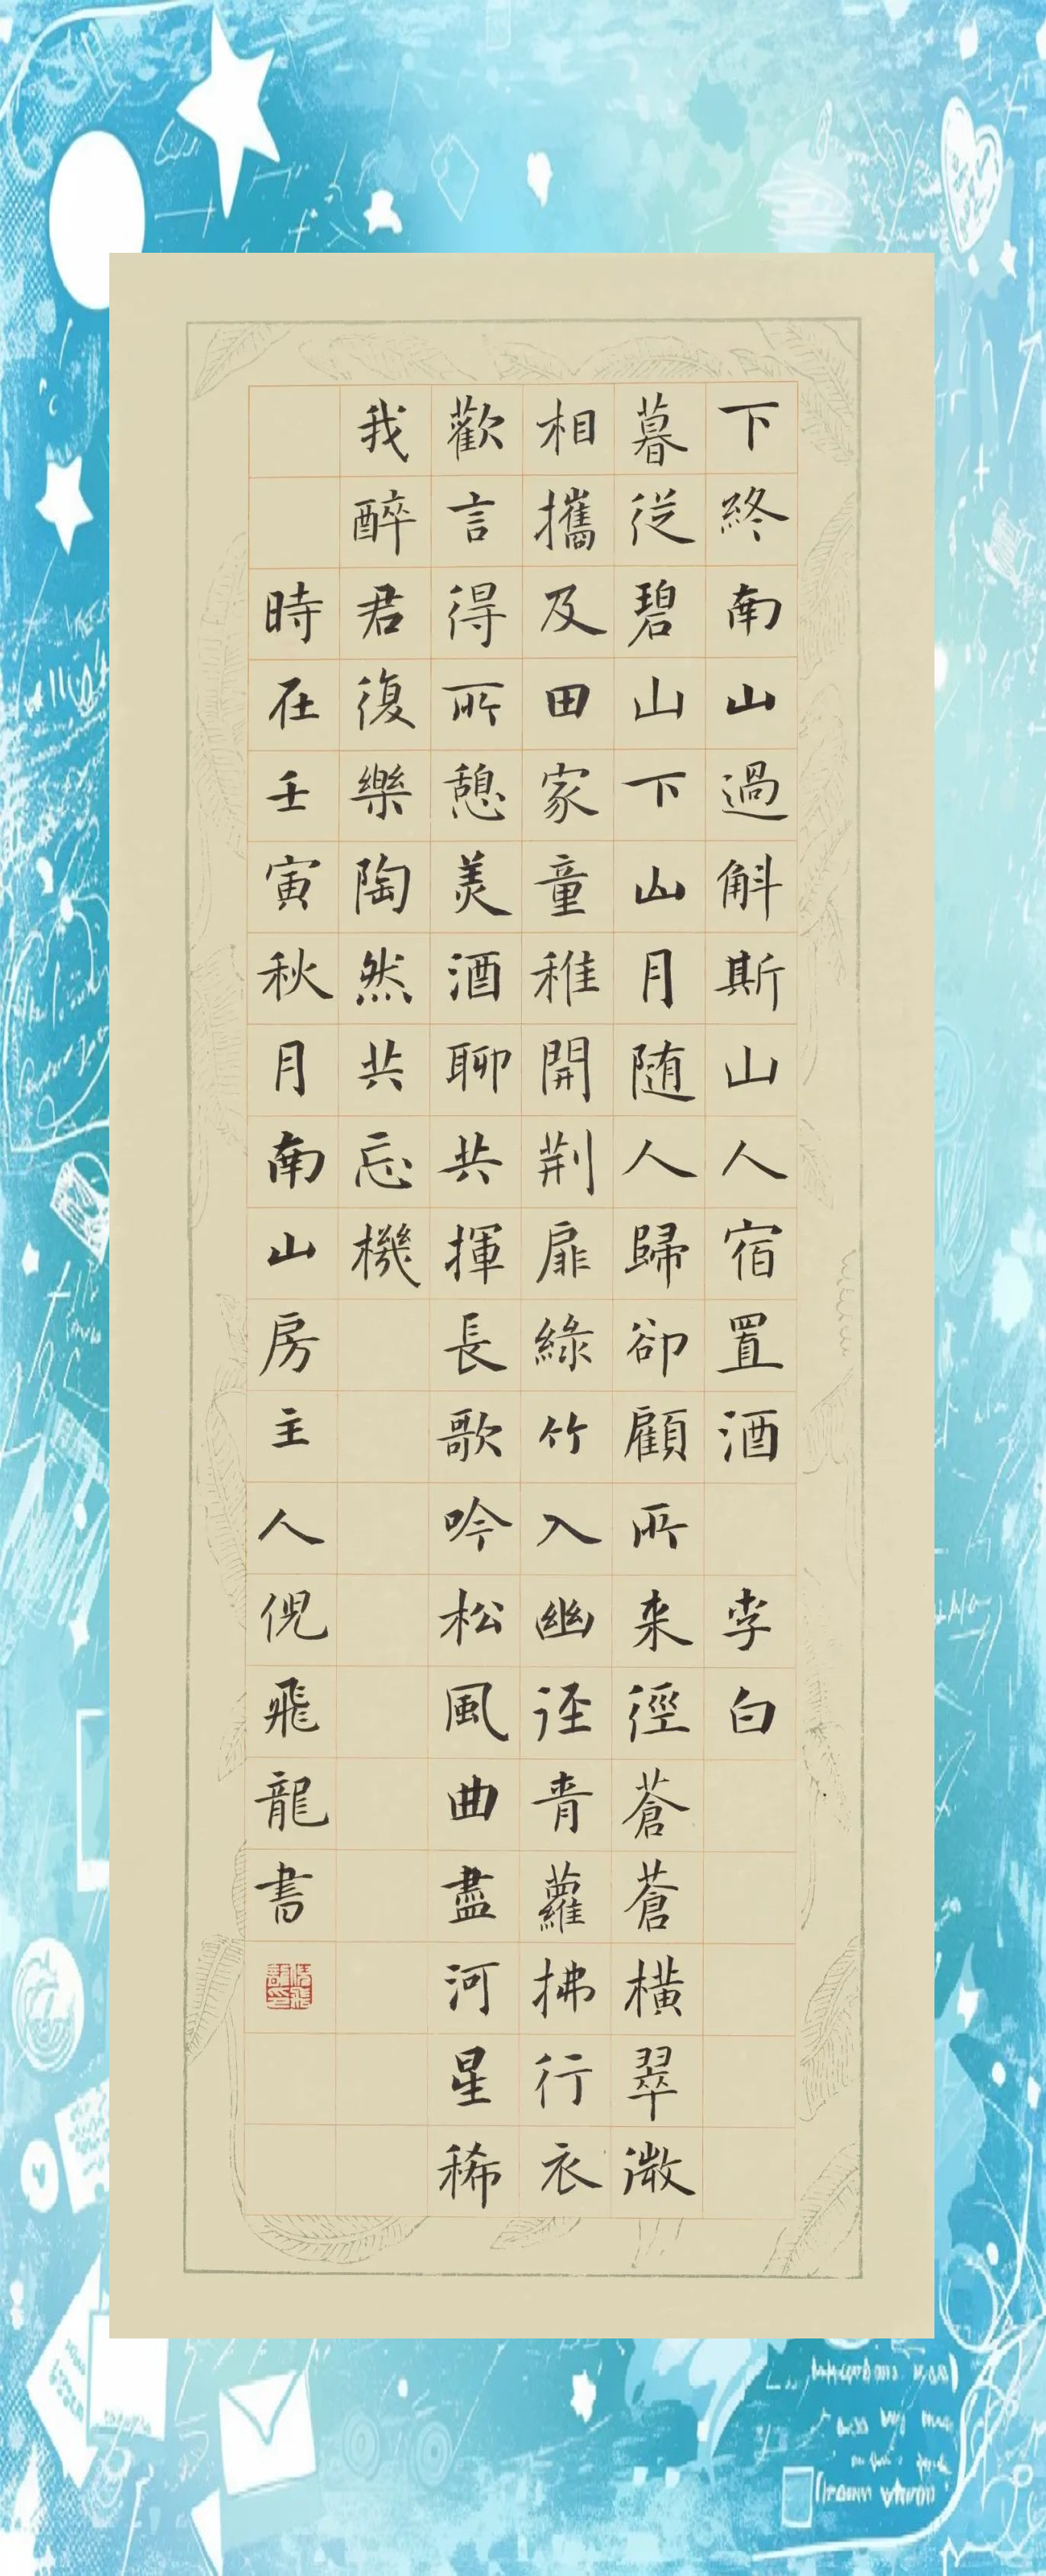 下終南山過斛斯山人宿置酒 李白
暮從碧山下山月随人歸卻顧所来徑蒼蒼橫翠微
相攜及田家童稚開荆扉綠竹入幽径青蘿拂行衣
歡言得所憩美酒聊共揮長歌吟松風曲盡河星稀
我醉君復樂陶然共忘機
時在壬寅秋月南山房主人倪飛龍書